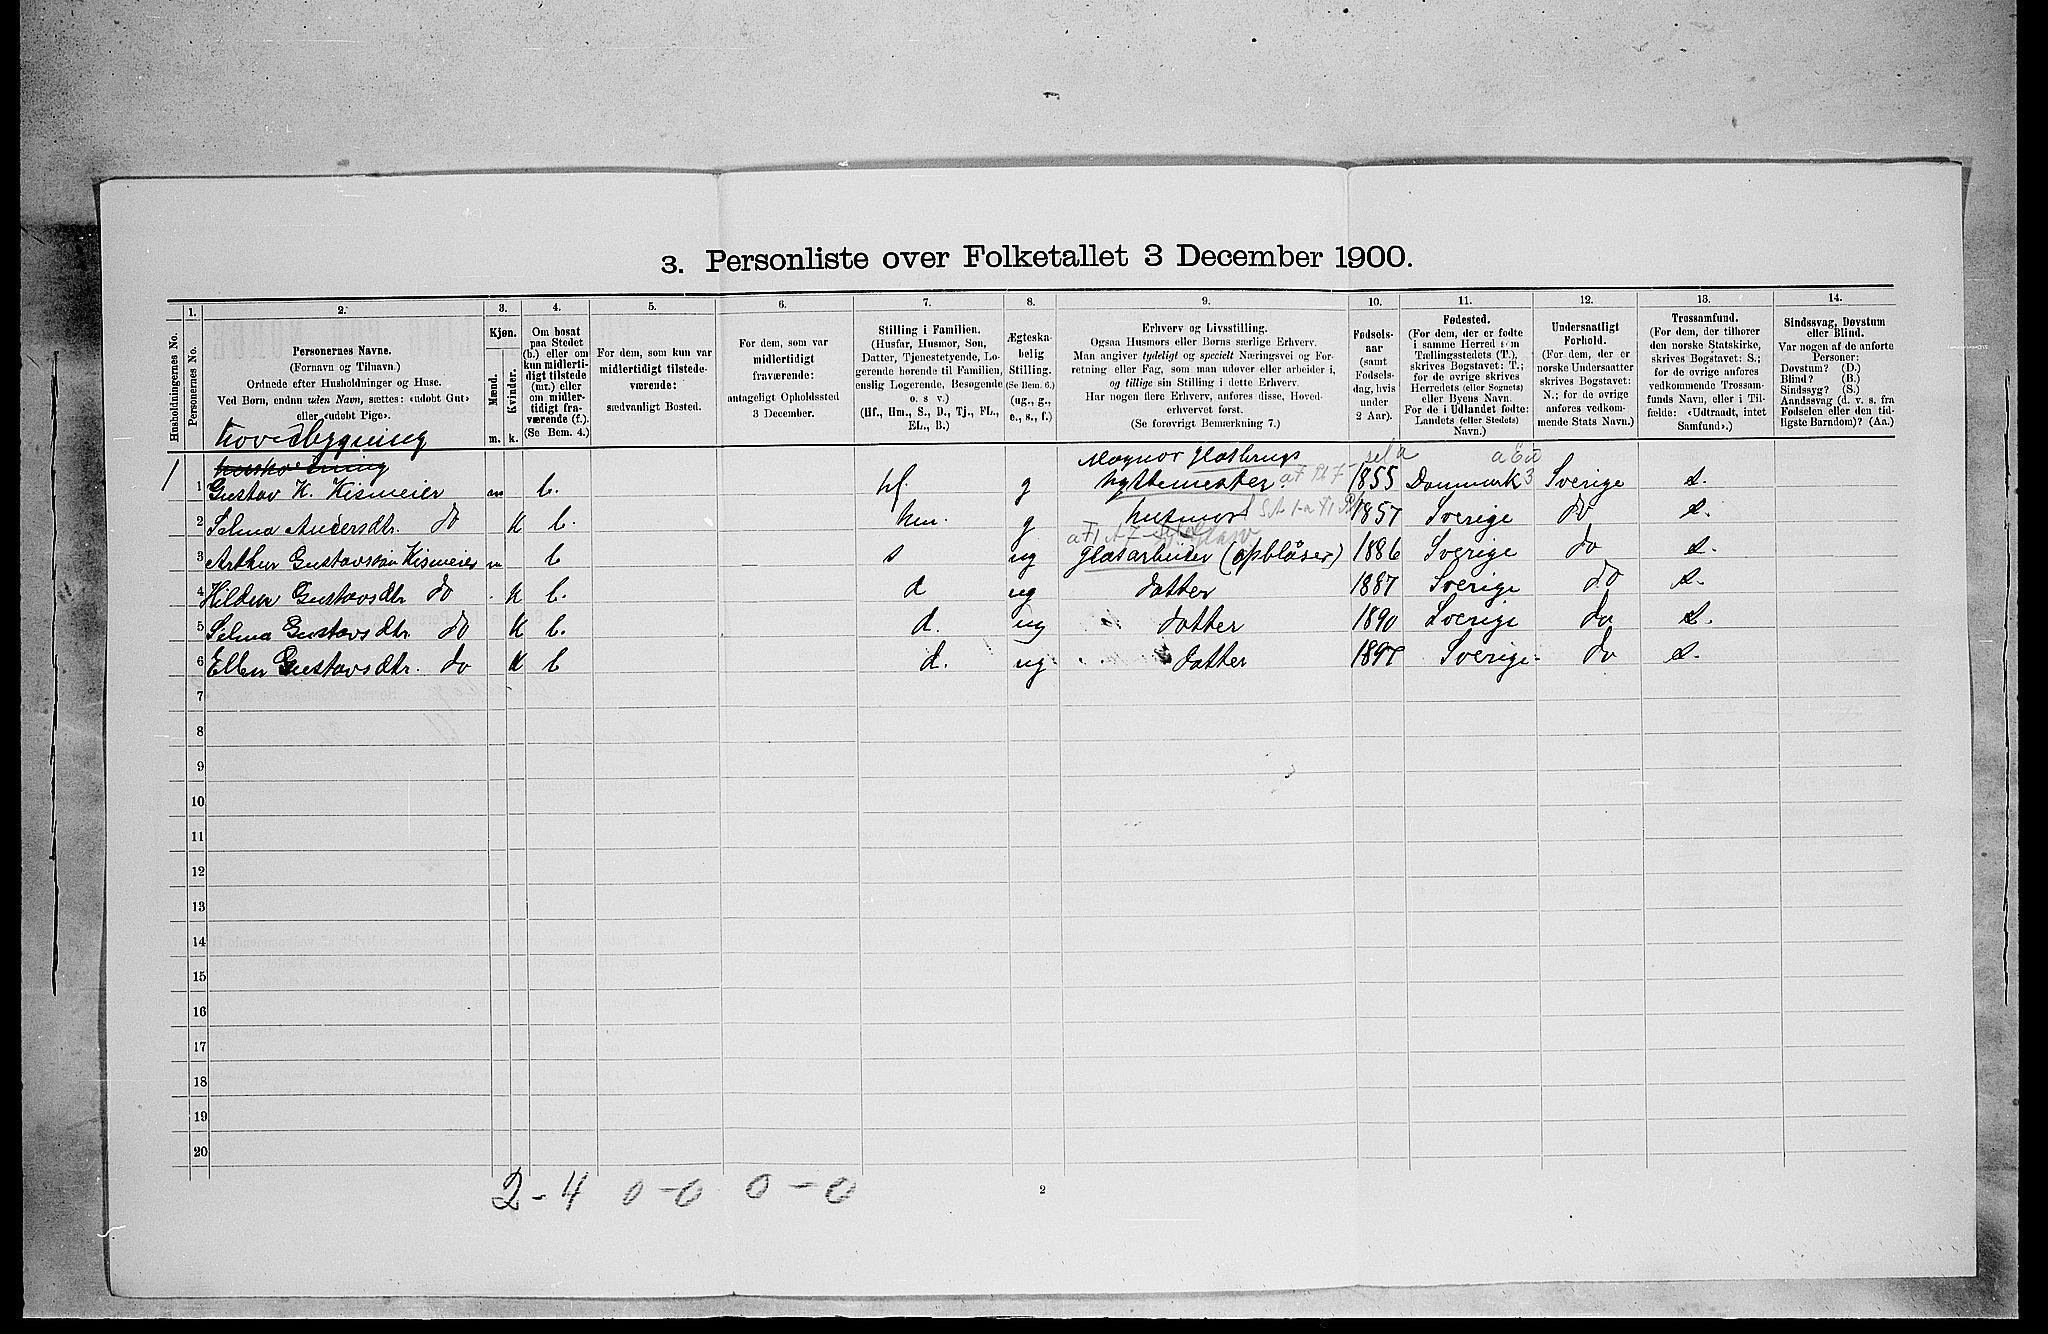 3. Personliste over Folketallet 3 December 1900.
1. 2. 3. 4. 5. 6. 7. 8. 9. 10. 11. 12. 13. 14.
Husholdningernes No.
Personernes No.
Personernes Navne.
(Fornavn og Tilnavn.)
Ordnede efter Husholdninger og Huse.
Ved Børn, endnu uden Navn, sættes: «udøbt Gut»
eller «udøbt Pige».
Kjøn.
Mænd.
Kvinder.
m. k.
Om bosat
paa Stedet
(b.) eller om
kun midlerti-
digt tilstede
(mt.) eller
om midler-
tidigt fra-
værende (f.).
(Se Bem. 4.)
For dem, som kun var
midlertidigt tilstede-
værende:
sædvanligt Bosted.
For dem, som var
midlertidigt
fraværende:
antageligt Opholdssted
3 December.
Stilling i Familien.
(Husfar, Husmor, Søn,
Datter, Tjenestetyende, Lo-
gerende hørende til Familien,
enslig Logerende, Besøgende
o. s v.)
(Hf., Hm., S., D., Tj., FL.,
EL., B.)
Ægteska-
belig
Stilling.
(Se Bem. 6.)
(ug., g.,
e., s., f.)
Erhverv og Livsstilling.
Ogsaa Husmors eller Børns særlige Erhverv.
Man angiver tydeligt og specielt Næringsvei og For-
retning eller Fag, som man udøver eller arbeider i,
og tillige sin Stilling i dette Erhverv.
Har nogen flere Erhverv, anføres disse, Hoved-
erhvervet først.
(Se forøvrigt Bemærkning 7.)
Fødsels-
aar
(samt
Fødsels-
dag, hvis
under
2 Aar).
Fødested.
(For dem, der er fødte
i samme Herred som
Tællingsstedets (T.),
skrives Bogstavet: T.;
for de øvrige skrives
Herredets (eller Sognets)
eller Byens Navn.
For de i Udlandet fødte:
Landets (eller Stedets)
Navn.)
Undersaatligt
Forhold.
(For dem, der er
norske Undersaatter
skrives Bogstavet:
N.; for de øvrige
anføres vedkom-
mende Stats Navn.)
Trossamfund.
(For dem, der tilhører
den norske Statskirke,
skrives Bogstavet: S.;
for de øvrige anføres
vedkommende Trossam-
funds Navn, eller i Til-
fælde: «Udtraadt, intet
Samfund».)
Sindssvag, Døvstum
eller Blind.
Var nogen af de anførte
Personer:
Døvstum? (D.)
Blind? (B.)
Sindssyg? (S.)
Aandssvag (d. v. s. fra
Fødselen eller den tid-
ligste Barndom)? (Aa.)
hovedbygning
Magnor glasbrugs
1 1 Gustav K. Kismeier m b. hf. g hyttemester. 1855 Danmark 3 Sverige s.
2 Selma Andersdtr. do K b. hm. g husmor 1857 Sverige do s.
3 Arthur Gustavsøn Kismeier m b s ug glasarbeider (opblåser) 1886 Sverige do s.
4 Hildur Gustavsdtr do K b. d ug datter 1887 Sverige do s.
5 Selma Gustavsdtr. do K b. d. ug datter 1890 Sverige do s.
6 Ellen Gustavsdtr. do K b d. ug datter 1897 Sverige. do s.
7
8
9
10
11
12
13
14
15
16
17
18
19
20
2 - 4 0 - 0 0 - 0
2